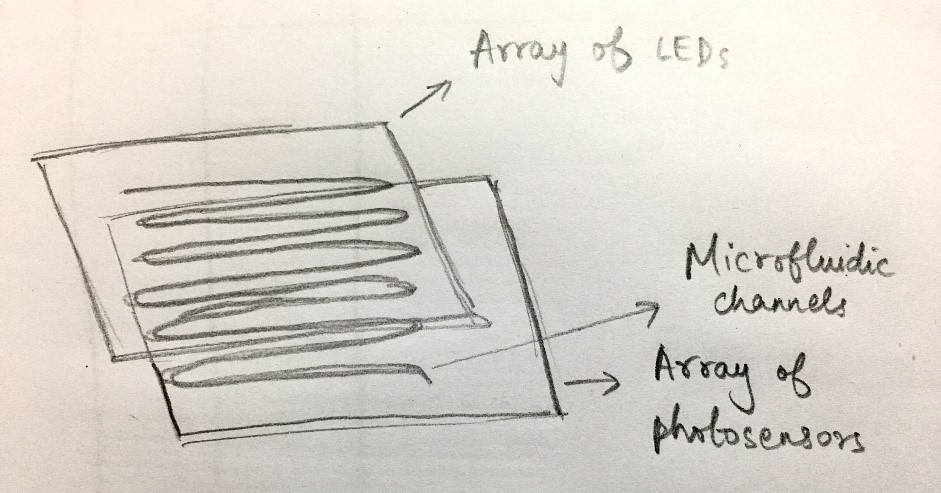 Array of LEDs
Microfluidic
channels
Array of
photosensors